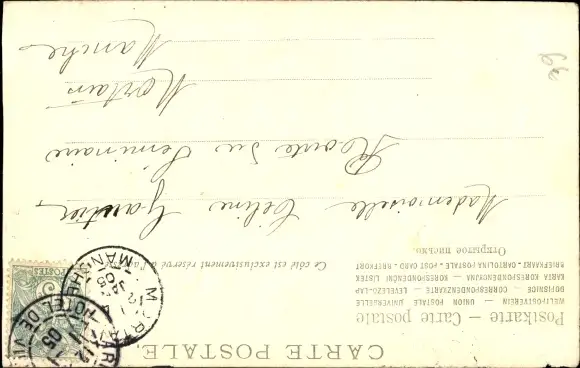 CARTE POSTALE
Postkarte — Carte postale
WELTPOSTVEREIN — UNION POSTALE UNIVERSELLE
DOPISNICE — CORRESPONDENZKARTE — LEVELEZÖ-LAP
KARTA KORESPONDENCYJNA — KORESPONDENČNÍ LÍSTEK
BRIEFKAART — CARTOLINA POSTALE — POST-CARD — BREFKORT
Открытое письмо.
Ce côté est exclusivement réservé à l'a
POSTES
MORTAIN
12
05
MANCHE
PARIS
12
05
HOTEL DE VI
Mademoiselle Céline Gautier,
Route du Séminaire
Mortain
Manche